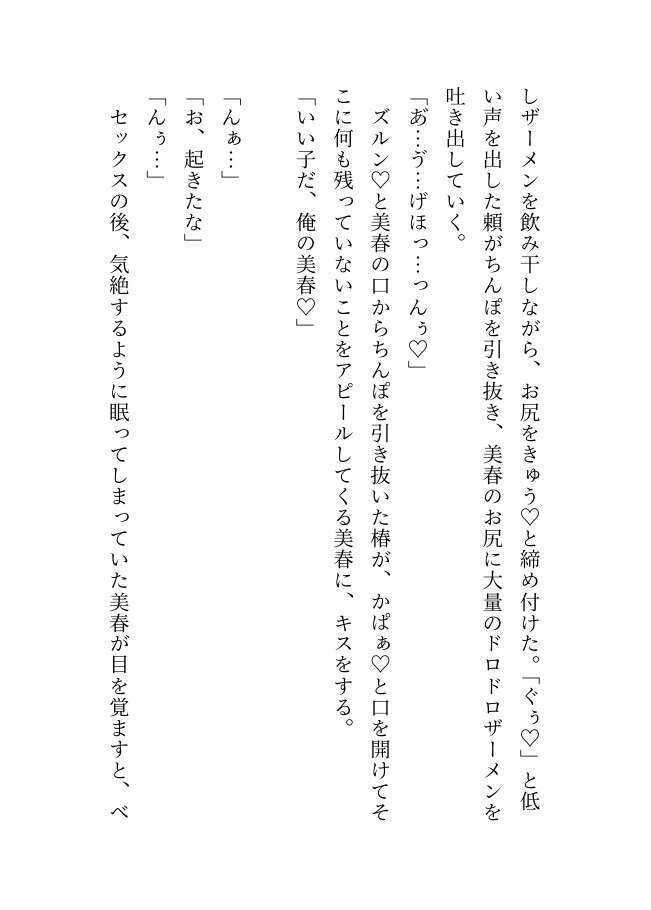 しザーメンを飲み干しながら、お尻をきゅう♡と締め付けた。「ぐぅ♡」と低
い声を出した頼がちんぽを引き抜き、美春のお尻に大量のドロドロザーメンを
吐き出していく。
「あ゛…ゔ…げほっ…っんぅ♡」
　ズルン♡と美春の口からちんぽを引き抜いた椿が、かぱぁ♡と口を開けてそ
こに何も残っていないことをアピールしてくる美春に、キスをする。
「いい子だ、俺の美春♡」
「んぁ…」
「お、起きたな」
「んぅ…」
　セックスの後、気絶するように眠ってしまっていた美春が目を覚ますと、ベ